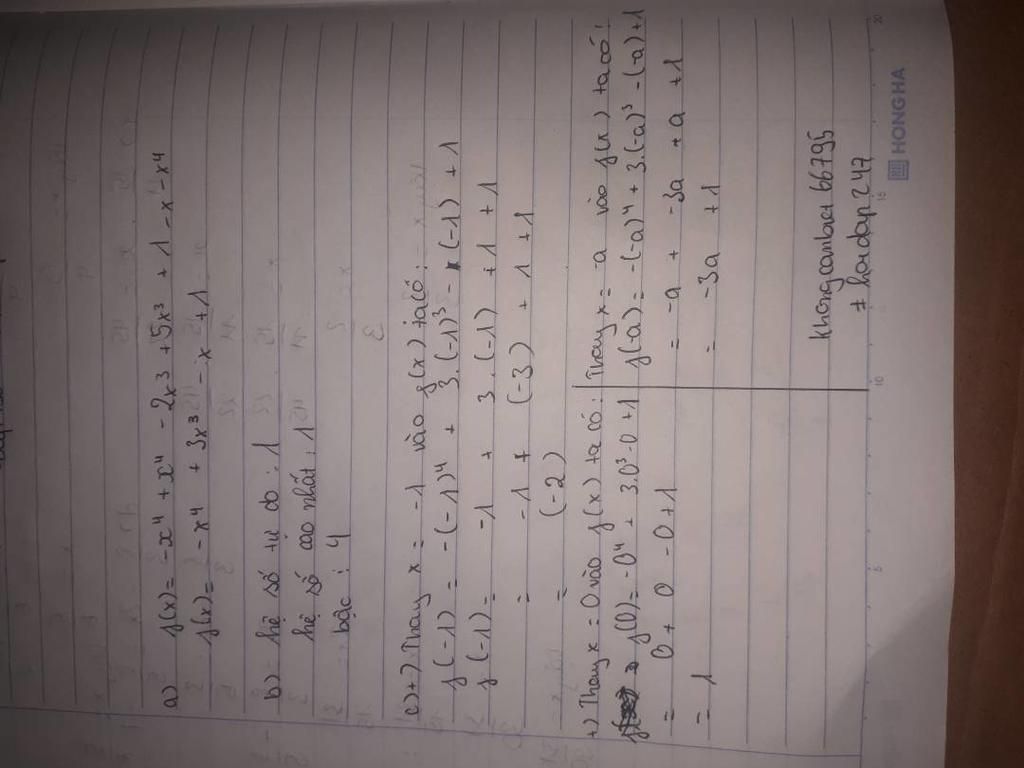 a) f(x) = -x⁴ + x⁴ - 2x³ + 5x³ + 1 - x - x⁴
f(x) = -x⁴ + 3x³ - x + 1
b) - hệ số tự do : 1
hệ số cao nhất : 1
bậc : 4
c) +) Thay x = -1 vào f(x) ta có :
f(-1) = -(-1)⁴ + 3.(-1)³ - (-1) + 1
f(-1) = -1 + 3.(-1) + 1 + 1
= -1 + (-3) + 1 + 1
= (-2)
+) Thay x = 0 vào f(x) ta có :
f(0) = -0⁴ + 3.0³ - 0 + 1
= 0 + 0 - 0 + 1
= 1
Thay x = -a vào f(x) ta có :
f(-a) = -(-a)⁴ + 3.(-a)³ - (-a) + 1
= -a + -3a + a + 1
= -3a + 1
khongcambat66795
+ hoidap247
HONG HA
5
10
15
20